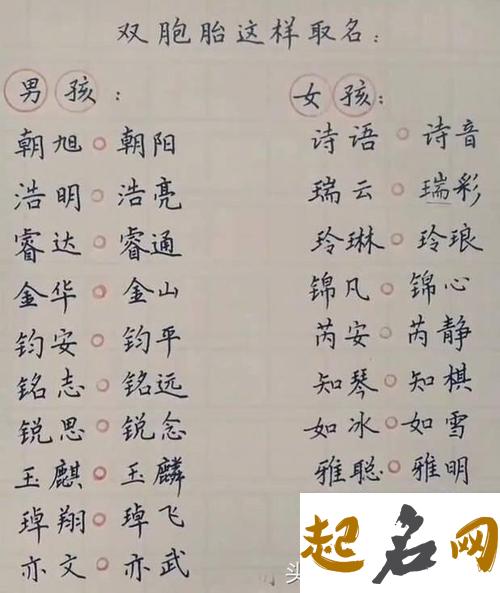 双胞胎这样取名：
男孩：
朝旭。朝阳
浩明。浩亮
睿达。睿通
金华。金山
钧安。钧平
铭志。铭远
锐思。锐念
玉麒。玉麟
琸翔。琸飞
亦文。亦武
女孩：
诗语。诗音
瑞云。瑞彩
玲琳。玲琅
锦凡。锦心
芮安。芮静
知琴。知棋
如冰。如雪
雅聪。雅明
头
起名网